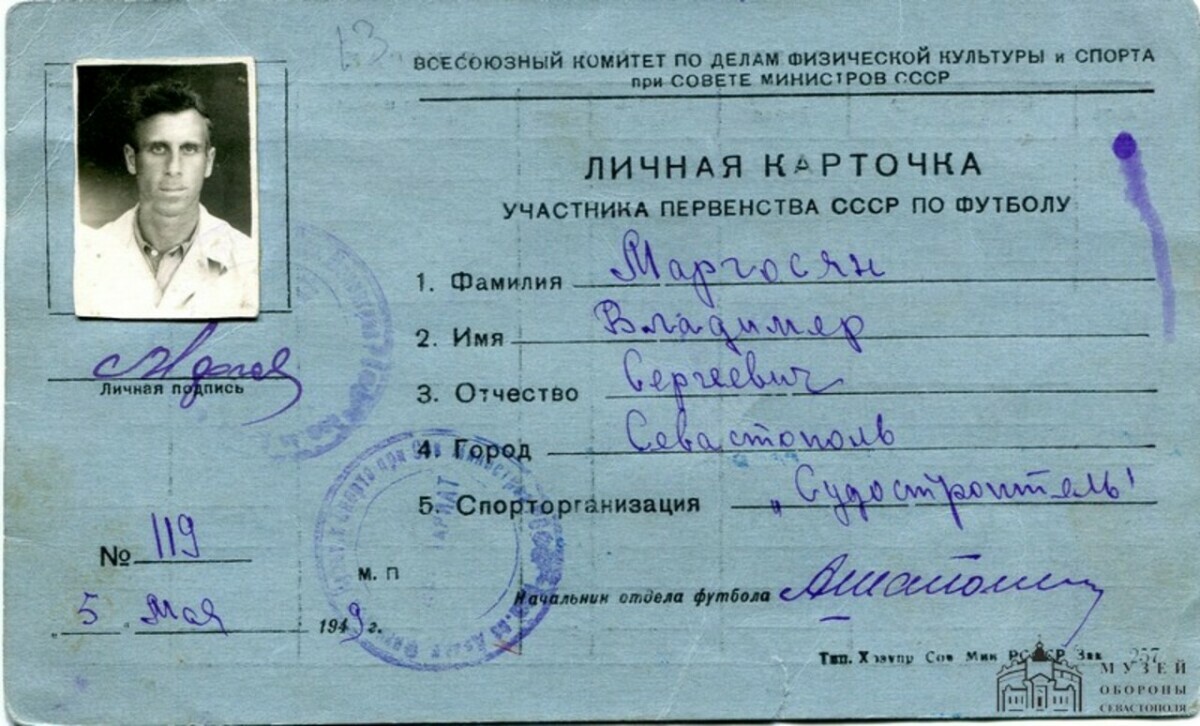 13
ВСЕСОЮЗНЫЙ КОМИТЕТ ПО ДЕЛАМ ФИЗИЧЕСКОЙ КУЛЬТУРЫ и СПОРТА
при СОВЕТЕ МИНИСТРОВ СССР
ЛИЧНАЯ КАРТОЧКА
УЧАСТНИКА ПЕРВЕНСТВА СССР ПО ФУТБОЛУ
1. Фамилия Маргосян
2. Имя Владимер
Личная подпись
3. Отчество Сергеевич
4. Город Севастополь
5. Спорторганизация „Судостроитель"
№ 119
М. П
Начальник отдела футбола
„5" Мая 1949 г.
Тип. Хозупр Сов Мин РСФСР Зак 257
МУЗЕЙ
ОБОРОНЫ
СЕВАСТОПОЛЯ